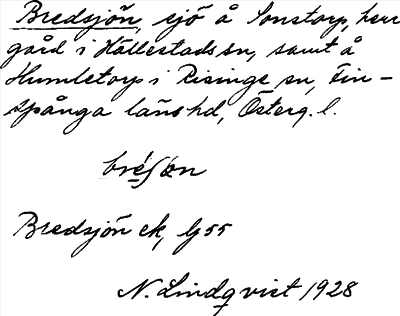 Bredsjön, sjö å Sonstorp, herr
gård i Hällestads sn, samt å
Humletorp i Risinge sn, Fin-
spånga länshd, Österg. l.
Bredsjön ek, G55
N. Lindqvist 1928